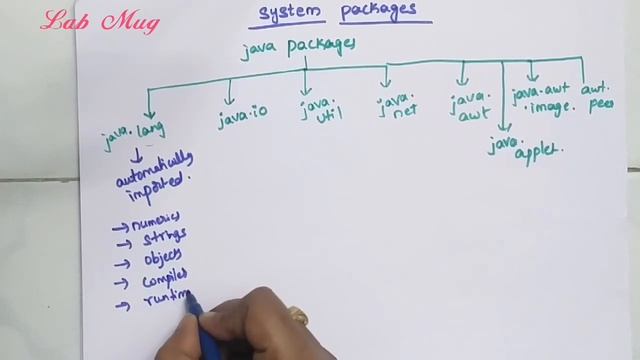 Lab Mug
system packages
java packages
java.lang
java.io
java.util
java.net
java.awt
java.applet.
java.awt.image.
awt.peer
automatically imported.
→ numerics
→ strings
→ objects
→ compiler
→ runtim